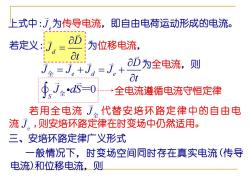 上式中:J̄_c为传导电流，即自由电荷运动形成的电流。
若定义: J̄_d = ∂D̄/∂t 为位移电流，
J̄_全 = J̄_c + J̄_d = J̄_c + ∂D̄/∂t 为全电流，则
∮_S J̄_全•dS̄=0 → 全电流遵循电流守恒定律
若用全电流 J̄_全 代替安培环路定律中的自由电
流 J̄_c ,则安培环路定律在时变场中仍然适用。
三、安培环路定律广义形式
一般情况下，时变场空间同时存在真实电流(传导
电流)和位移电流，则